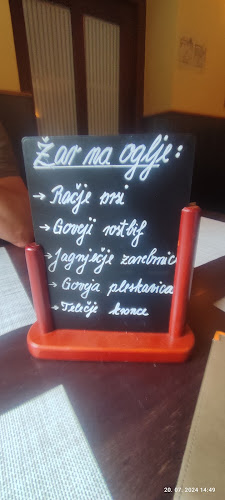 Žar na oglje:
→ Račje prsi
→ Goveji rostbif
→ Jagnječje zarebrnice
→ Goveja pleskavica
→ Telečje kronce
20. 07. 2024 14:49